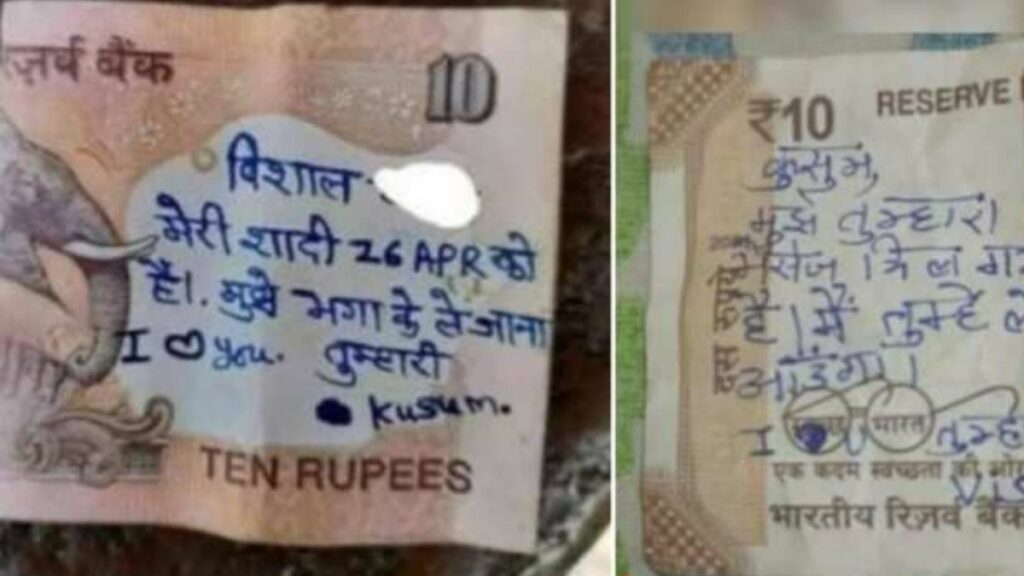 रिज़र्व बैंक
10
विशाल
मेरी शादी 26 APR को
है। मुझे भगा के ले जाना
I ♡ you. तुम्हारी
Kusum.
TEN RUPEES
₹10
RESERVE
कुसुम,
मुझे तुम्हारा
मेसेज मिल
है। मैं तुम्हें
आउंगा।
I
भारत
एक कदम स्वच्छता की ओर
भारतीय रिज़र्व बैंक
दस रुपये